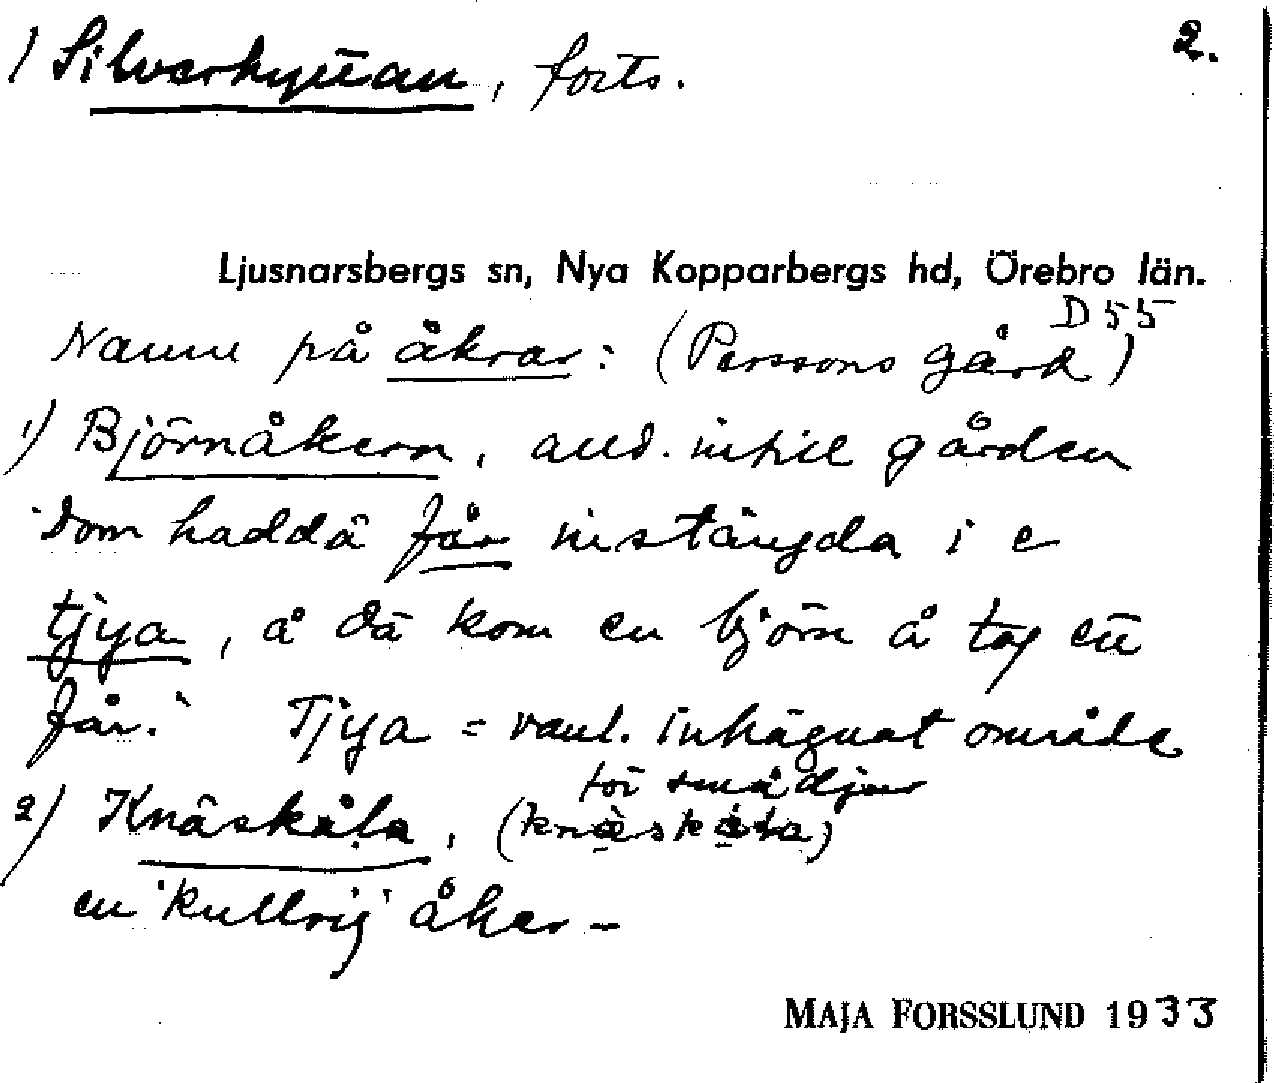 1) Silverhyttan, forts. 2.
Ljusnarsbergs sn, Nya Kopparbergs hd, Örebro län.
D 55
Namn på åkrar: (Perssons gård)
1) Björnåkern, alld. intill gården
"Dom haddä får instängda i e
tjya, å dä kom en björn å tog ett
får." Tjya = vanl. inhägnat område
för smådjur
2) Knäskåla, (knäskåla)
en 'kullrig' åker –
MAJA FORSSLUND 1933